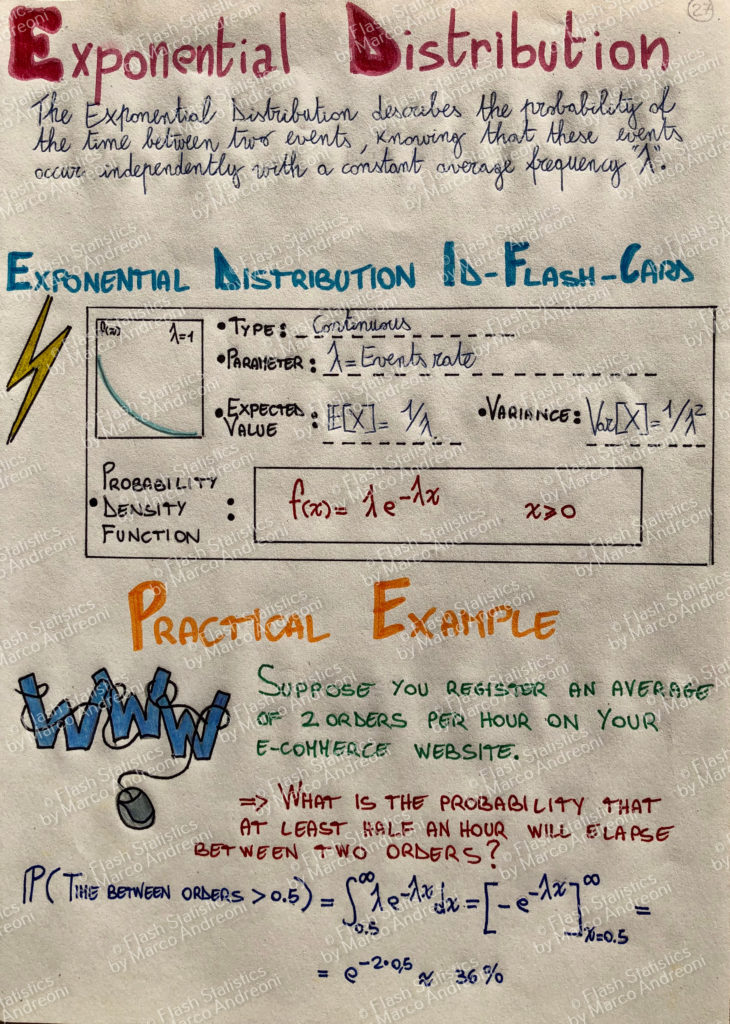 27
Exponential Distribution
The Exponential Distribution describes the probability of
the time between two events, knowing that these events
occur independently with a constant average frequency "λ".
EXPONENTIAL DISTRIBUTION ID-FLASH-CARD
f(x) λ=1
• TYPE: Continuous
• PARAMETER: λ = Events rate
• EXPECTED VALUE: E[X] = 1/λ
• VARIANCE: Var[X] = 1/λ²
• PROBABILITY
DENSITY
FUNCTION :
f(x) = λe^{-λx} x≥0
PRACTICAL EXAMPLE
WWW
SUPPOSE YOU REGISTER AN AVERAGE
OF 2 ORDERS PER HOUR ON YOUR
E-COMMERCE WEBSITE.
=> WHAT IS THE PROBABILITY THAT
AT LEAST HALF AN HOUR WILL ELAPSE
BETWEEN TWO ORDERS?
P(TIME BETWEEN ORDERS > 0.5) = ∫_{0.5}^{∞} λe^{-λx} dx = [-e^{-λx}]_{x=0.5}^{∞} =
= e^{-2·0,5} ≈ 36%
© Flash Statistics
by Marco Andreoni